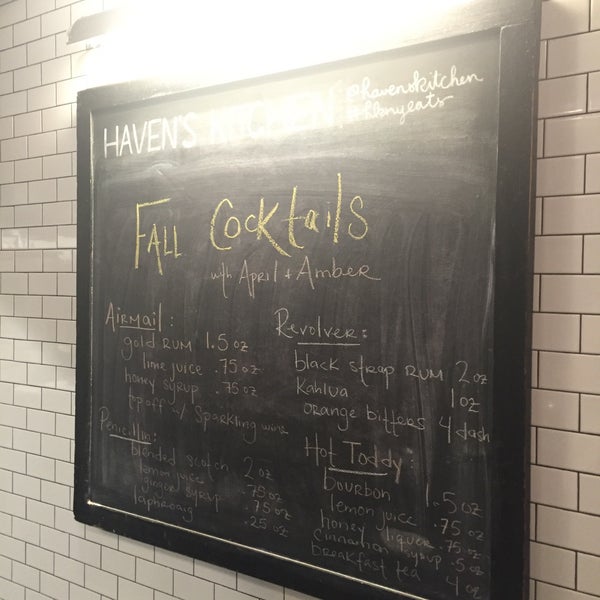 HAVEN'S KITCHEN
@havenskitchen
#hknyeats
FALL Cocktails
with April + Amber
AIRMAIL:
gold RUM 1.5 oz
lime juice .75 oz
honey syrup .75 oz
top off w/ Sparkling wine
Penicillin:
blended scotch 2 oz
lemon juice .75 oz
ginger syrup .75 oz
laphroaig .25 oz
Revolver:
black strap RUM 2 oz
Kahlua 1 oz
orange bitters 4 dash
Hot Toddy:
bourbon 1.5 oz
lemon juice .75 oz
honey liquer .75 oz
cinnamon syrup .5 oz
breakfast tea 4 oz